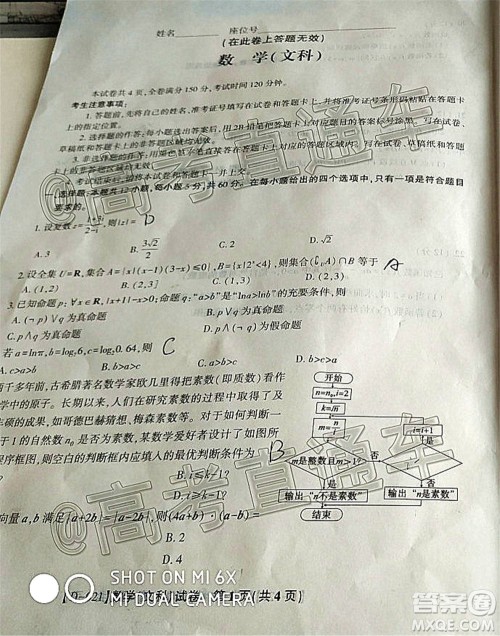 姓名 座位号
(在此卷上答题无效)
数 学(文科)
本试卷共4页,全卷满分150分,考试时间120分钟。
考生注意事项:
1. 答题前,先将自己的姓名、准考证号填写在试卷和答题卡上,并将准考证号条形码粘贴在答题卡
上的指定位置。
2. 选择题的作答:每小题选出答案后,用2B铅笔把答题卡上对应题目的答案标号涂黑。写在试卷、
草稿纸和答题卡上的非答题区域均无效。
3. 非选择题的作答:用
直接答在答题卡上对应的答题区域内。写在试卷、草稿纸和答题卡
上的非答题区域均无效。
4. 考试结束后,请将本试卷和答题卡一并上交。
一、选择题:本题共12小题,每小题5分,共60分。在每小题给出的四个选项中,只有一项是符合题目
要求的。
1. 设复数z=(1+3i)/(2-i),则|z|= D
A. 3 B. 3√2/2 C. 2 D. √2
2. 设全集U=R,集合A={x|(x-1)(3-x)≤0},B={x|2ˣ<4},则集合(∁ᵤA)∩B等于 A
A. (1,2) B. (2,3] C. (1,3) D. (2,3)
3. 已知命题p:∀x∈R,|x+1|-x>0;命题q:"a>b"是"lna>lnb"的充要条件,则
A. (¬p)∨q为真命题 B. p∧q为真命题
C. p∨q为假命题 D. p∧(¬q)为假命题
若a=lnπ,b=log₇6,c=log₂0.64,则 C
A. c>a>b B. b>a>c C. a>b>c D. b>c>a
两千多年前,古希腊著名数学家欧几里得把素数(即质数)看作
学中的原子。长期以来,人们在研究素数的过程中取得了及
硕的成果,如哥德巴赫猜想、梅森素数等。对于如何判断一
于1的自然数n₀是否为素数,某数学爱好者设计了如图所
程序框图,则空白的判断框内应填入的最优判断条件为 B
B. i≤k-1?
D. i≥k-1?
开始
n=n₀,i=2
k=[√n]
m=n/i
i=i+1
m是整数且m>1? 否
是 否
是
输出"n不是素数" 输出"n是素数"
结束
向量a,b满足|a+2b|=|a-2b|,则(4a+b)·(a-b)=
B. 2
D. 4
数学(文科)试卷 第1页(共4页)
@高考直通车
@高考直通车
SHOT ON MI 6X
MI DUAL CAMERA
答案圈
MXQE.COM